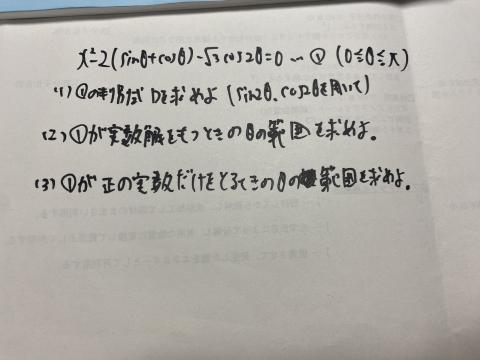 x²-2(sinθ+cosθ)-√3cos2θ=0 … ① (0≦θ≦π)
(1) ①の判別式Dを求めよ(sin2θ、cos2θを用いて)
(2) ①が実数解をもつときのθの範囲を求めよ。
(3) ①が正の実数だけをとるときのθの範囲を求めよ。